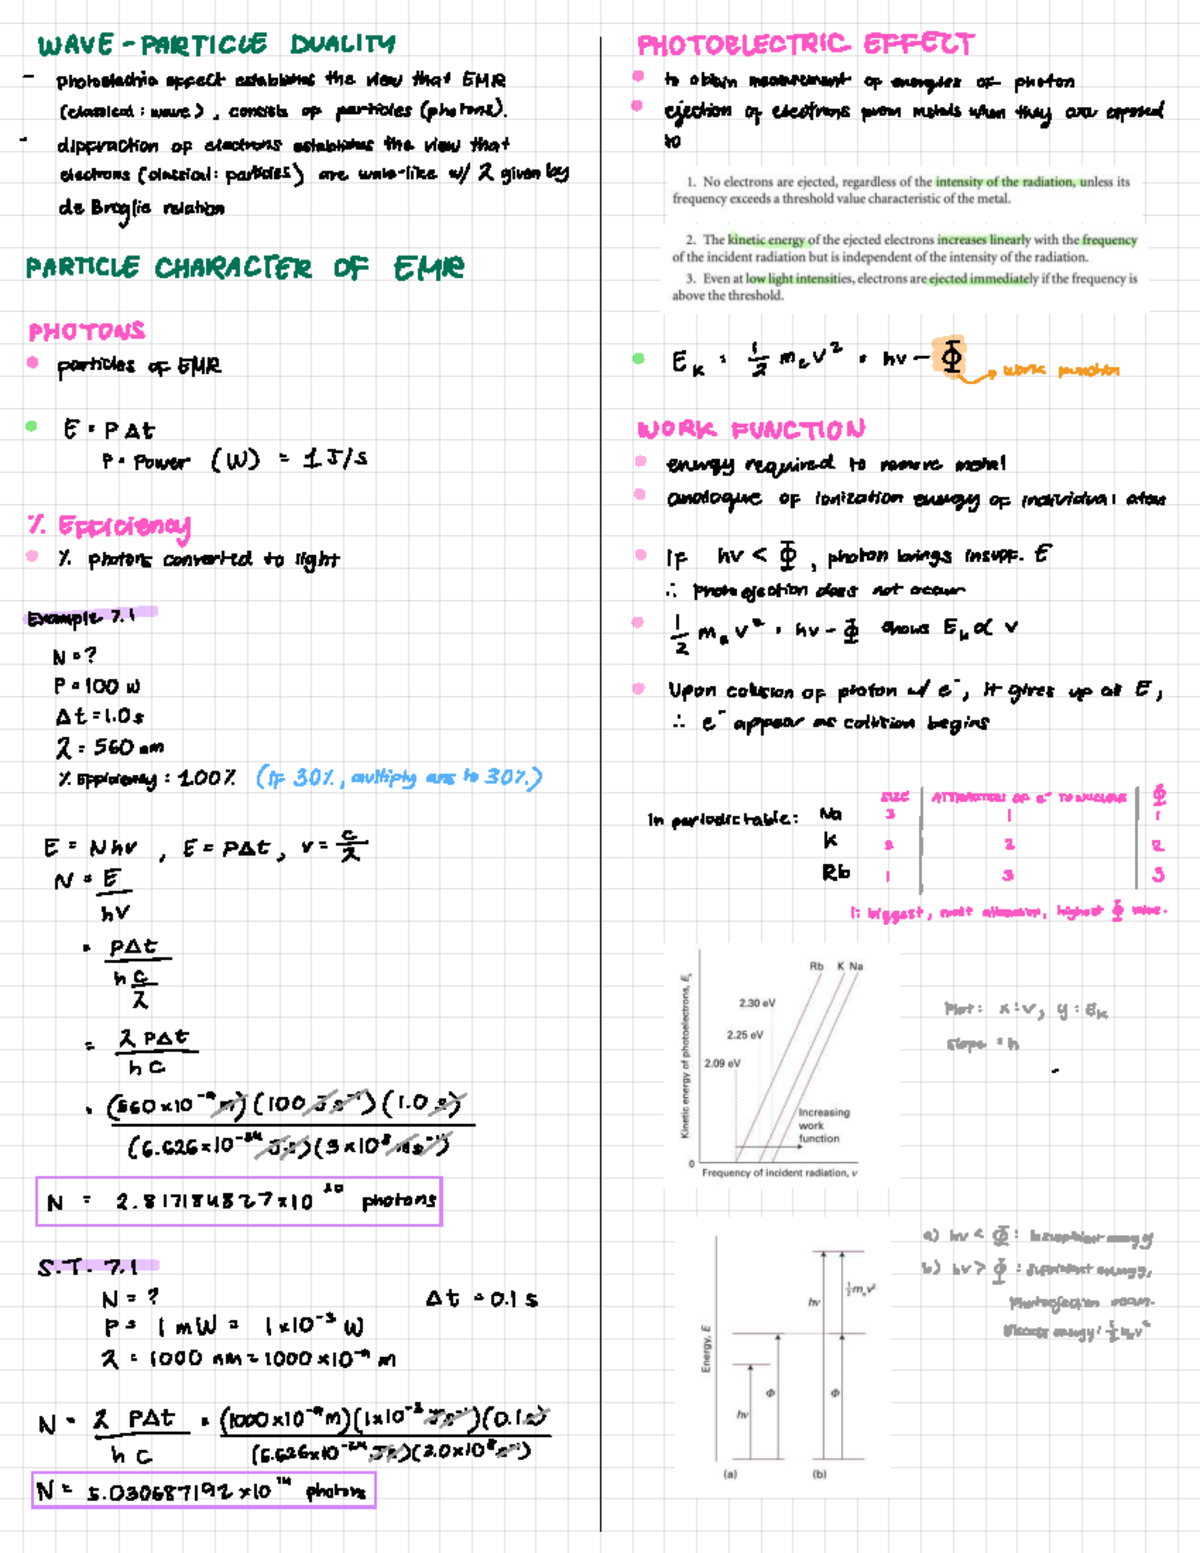 WAVE-PARTICLE DUALITY
- photoelectric effect establishes the view that EMR
(classical: wave), consists of particles (photons).
- diffraction of electrons establishes the view that
electrons (classical: particles) are wave-like w/ λ given by
de Broglie relation
PARTICLE CHARACTER OF EMR
PHOTONS
particles of EMR
E = PΔt
P = Power (W) = 1 J/s
% Efficiency
% photons converted to light
Example 7.1
N = ?
P = 100 W
Δt = 1.0 s
λ = 560 nm
% Efficiency: 100% (if 30%, multiply ans to 30%)
E = Nhν , E = PΔt, ν = c/λ
N = E/hν
= PΔt / h c/λ
= λPΔt / hc
= (560×10⁻⁹ m)(100 J s⁻¹)(1.0 s) / (6.626×10⁻³⁴ J·s)(3×10⁸ ms⁻¹)
N = 2.817184827×10²⁰ photons
S.T. 7.1
N = ? Δt = 0.1 s
P = 1 mW = 1×10⁻³ W
λ = 1000 nm = 1000×10⁻⁹ m
N = λPΔt / hc = (1000×10⁻⁹ m)(1×10⁻³ J s⁻¹)(0.1 s) / (6.626×10⁻³⁴ Js)(3.0×10⁸ s⁻¹)
N = 5.030687192×10¹⁴ photons
PHOTOELECTRIC EFFECT
to obtain measurement of energies of photon
ejection of electrons from metals when they are exposed
to
1. No electrons are ejected, regardless of the intensity of the radiation, unless its
frequency exceeds a threshold value characteristic of the metal.
2. The kinetic energy of the ejected electrons increases linearly with the frequency
of the incident radiation but is independent of the intensity of the radiation.
3. Even at low light intensities, electrons are ejected immediately if the frequency is
above the threshold.
E_K = 1/2 mₑv² = hν - Φ → work function
WORK FUNCTION
energy required to remove metal
analogue of ionization energy of individual atom
If hν < Φ, photon brings insuff. E
∴ photoejection does not occur
1/2 mₑv² = hν - Φ shows E_k ∝ ν
Upon collision of photon w/ e⁻, it gives up all E,
∴ e⁻ appear as collision begins
SIZE ATTRACTION OF e⁻ TO NUCLEUS Φ
In periodic table: Na 3 1 1
K 2 2 2
Rb 1 3 3
1: biggest, most attraction, highest Φ value.
Rb K Na
2.30 eV
2.25 eV
2.09 eV
Increasing
work
function
Kinetic energy of photoelectrons, Eₖ
0
Frequency of incident radiation, ν
Plot: x: ν, y: E_K
slope = h
Energy, E
hν
Φ
hν
Φ
½mₑv²
(a) (b)
a) hν < Φ: Insufficient energy
b) hν > Φ: sufficient energy,
Photoejection occurs.
Excess energy: 1/2 mₑv²